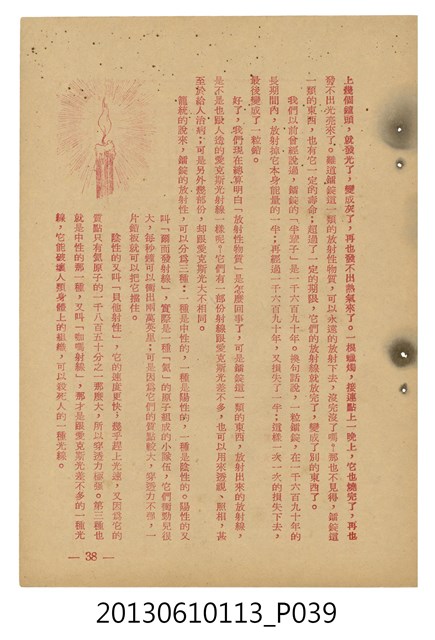 上幾個鐘頭，就發光了，變成灰了，再也發不出熱氣來了。一根蠟燭，接連點上一晚上，它也燒完了，再也
發不出光亮來了。難道鐳錠這一類的放射性物質，可以永遠的放射下去，沒完沒了嗎？那也不見得，鐳錠這
一類的東西，也有它一定的壽命；超過了一定的期限，它們的放射線就放完了，變成了別的東西了。
我們以前曾經說過，鐳錠的「半衰子」是一千六百九十年。換句話說，一粒鐳錠，在一千六百九十年的
長期間內，放射掉它本身能量的一半；再經過一千六百九十年，又損失了一半；這樣一次一次的損失下去，
最後變成了一粒鉛。
好了，我們現在總算明白「放射性物質」是怎麼回事了，可是鐳錠這一類的東西，放射出來的放射線，
是不是也跟人造的愛克斯光射線一樣呢？它們有一部份射線跟愛克斯光差不多，也可以用來透視、照相，甚
至於給人治病；可是另外幾部份，却跟愛克斯光大不相同。
籠統的說來，鐳錠的放射性，可以分為三種：一種是中性的，一種是陽性的，一種是陰性的。陽性的又
叫「爾而發射線」，實際是一種「氦」的原子組成的小隊伍，它們衝勁兒很
大，每秒鐘可以衝出兩萬英里；可是因為它們的質點較大，穿透力不強，一
片鉛板就可以把它擋住。
陰性的又叫「貝他射性」，它的速度更快，幾乎趕上光速，又因為它的
質點只有氦原子的一千八百五十分之一那麼大，所以穿透力極強。第三種也
就是中性的那一種，又叫「咖嗎射線」，那才是跟愛克斯光差不多的一種光
線，它能破壞人類身體上的組織，可以殺死人的一種光線。
— 38 —
20130610113_P039